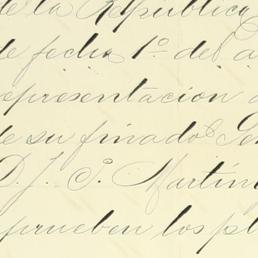 de la República
de fecha 1º. del a
representacion
de su finado Se
D. J. S. Martín
prueben los pl